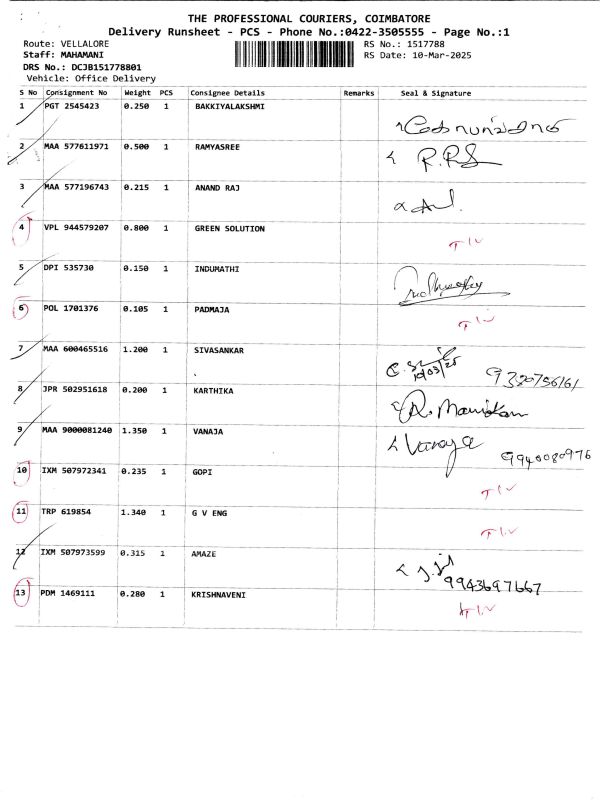 THE PROFESSIONAL COURIERS, COIMBATORE
Delivery Runsheet - PCS - Phone No.:0422-3505555 - Page No.:1
Route: VELLALORE RS No.: 1517788
Staff: MAHAMANI RS Date: 10-Mar-2025
DRS No.: DCJB151778801
Vehicle: Office Delivery
S No Consignment No Weight PCS Consignee Details Remarks Seal & Signature
1 PGT 2545423 0.250 1 BAKKIYALAKSHMI
2 MAA 577611971 0.500 1 RAMYASREE
3 MAA 577196743 0.215 1 ANAND RAJ
4 VPL 944579207 0.800 1 GREEN SOLUTION
5 DPI 535730 0.150 1 INDUMATHI
6 POL 1701376 0.105 1 PADMAJA
7 MAA 600465516 1.200 1 SIVASANKAR
10/03/25
8 JPR 502951618 0.200 1 KARTHIKA
9 MAA 9000081240 1.350 1 VANAJA Vanaja
9940080976
10 IXM 507972341 0.235 1 GOPI
11 TRP 619854 1.340 1 G V ENG
12 IXM 507973599 0.315 1 AMAZE
9943697667
13 PDM 1469111 0.280 1 KRISHNAVENI